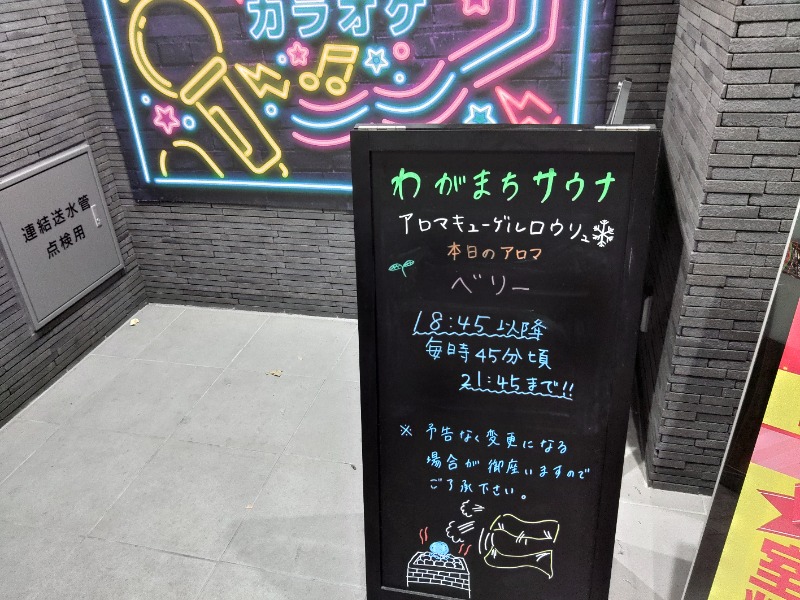 カラオケ
連結送水管
点検用
わがまちサウナ
アロマキューゲルロウリュ
本日のアロマ
ベリー
18:45以降
毎時45分頃
21:45まで!!
※ 予告なく変更になる
場合が御座いますので
ご了承下さい。